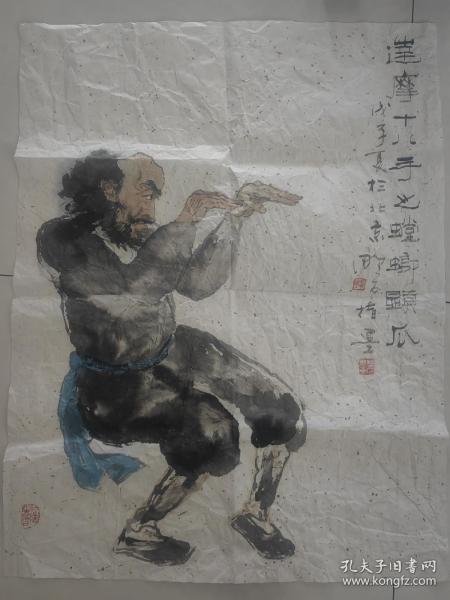 達摩十八手之螳螂顕爪
戊子夏於北京
指墨
孔夫子旧书网
www.kongfz.com